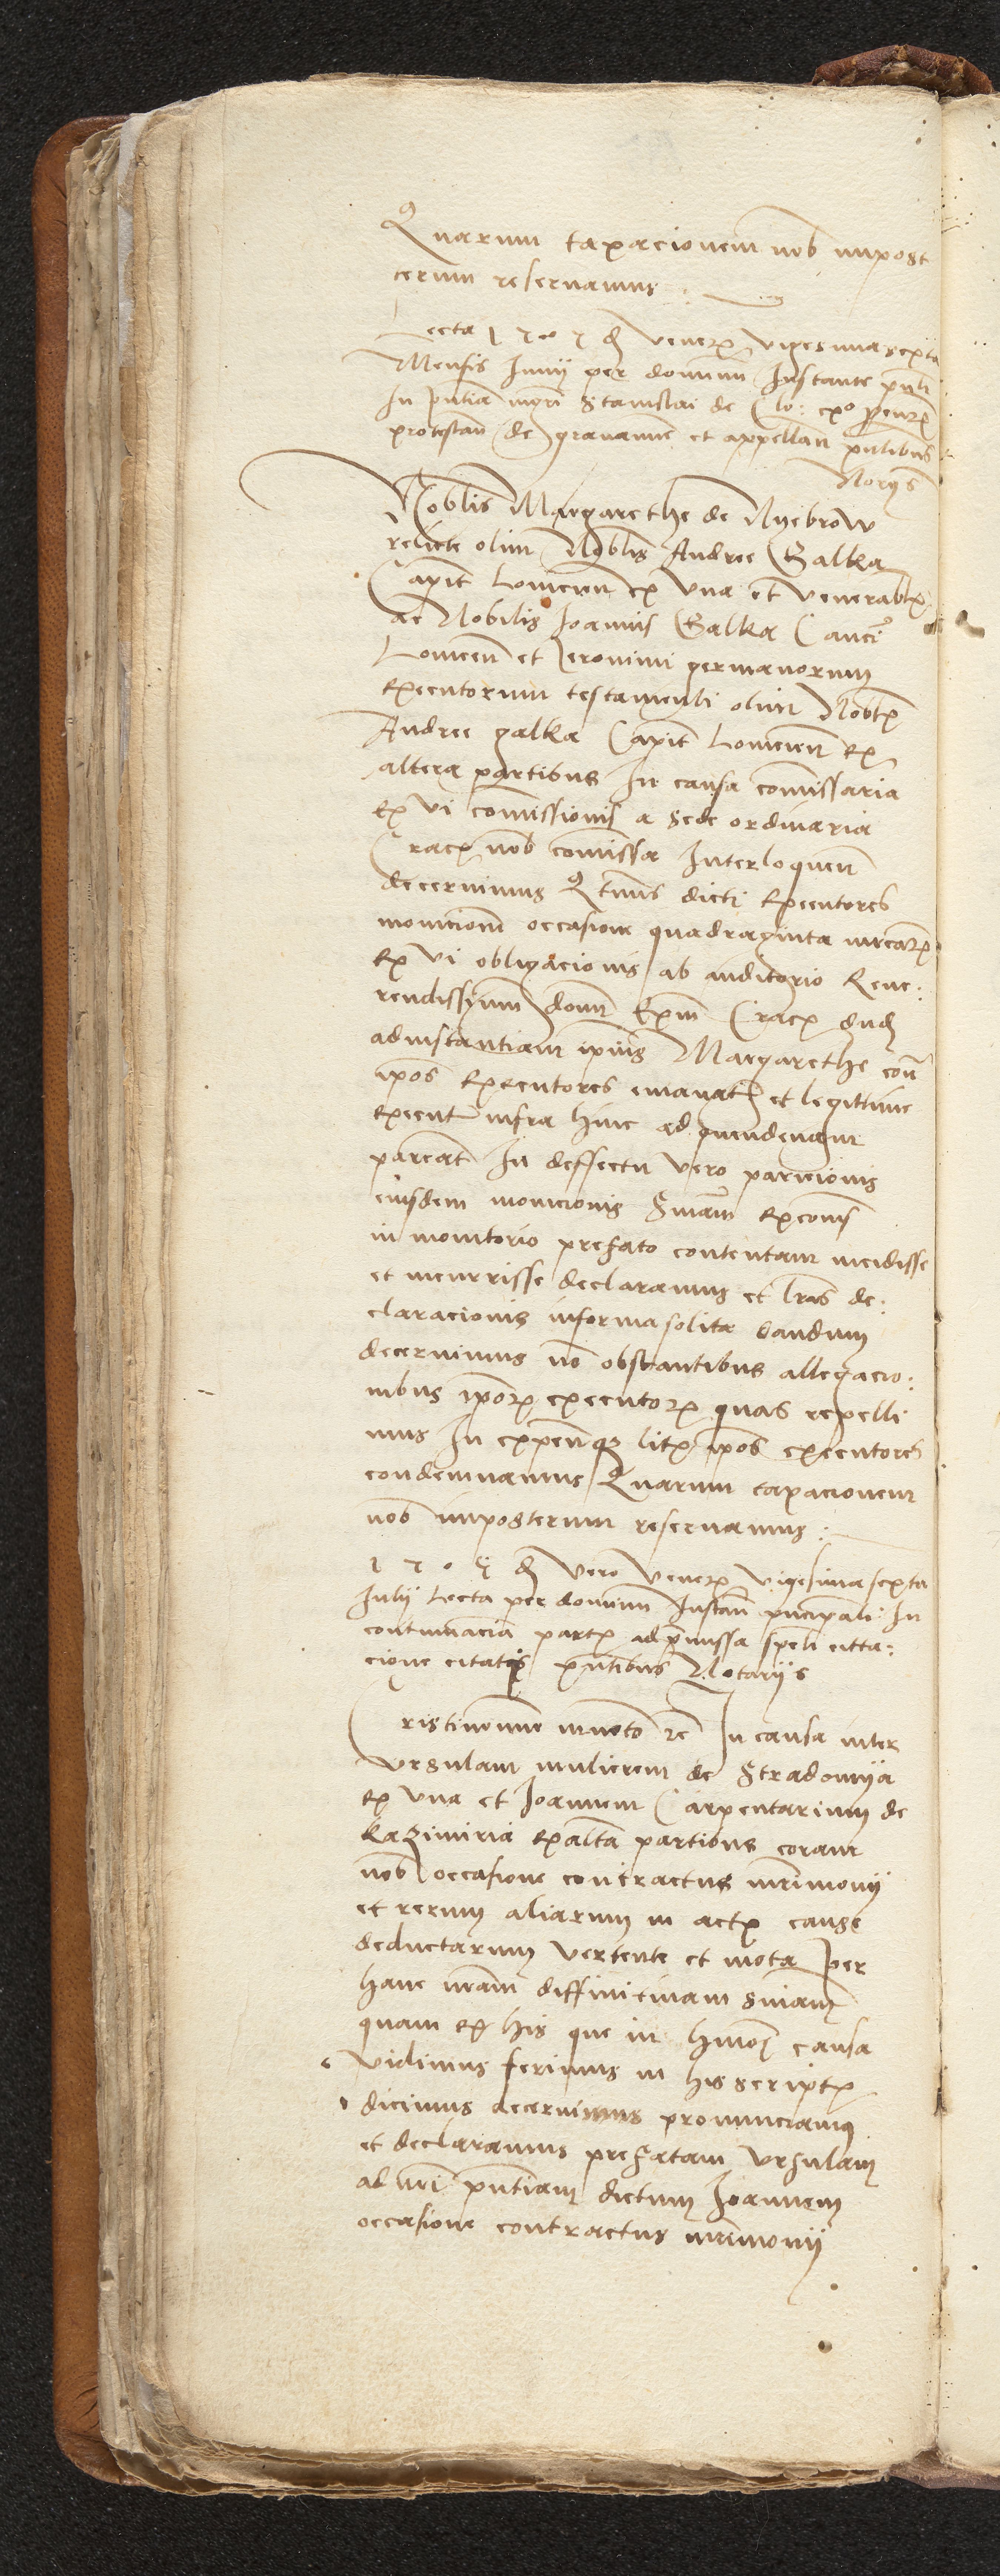 Quarum taxacionem nob impost
cerum reservamus :
Lecta 1505 d venerꝝ vigesimasexta
Mensis Junij per dominum Instante pnli
In pntia mgri Stanislai de Clo: exo
protestan de gravamine et appellan pntibus
Norijs
Noblis Margarethe de Nyebrow
relicte olim Noblis Andree Galka
Capit Lovicien ex una et venerablꝭ
ac Nobilis Joannis Galka Canci
Loviceñ et Jeronimi germanorum
executorum testamenti olim Noblꝭ
Andree galka Capit Lovicien ex
altera partibus In causa comissaria
ex vi comissionis a Sede ordinaria
Cracꝭ nob comissa Interloquen
decernimus Qtnus dicti executores
monicionem occasione quadraginta mrcarꝝ
ex vi obligacionis ab auditorio Reve:
rendissimi domi Epi Cracꝭ dud
adinstantiam ipius Margarethe con
ipos executores emanat et legittime
execut infra hinc ad quindenam
pareant In deffectu vero paricionis
eiusdem monicionis Sniam exconis
in monitorio prefato contentam incidisse
et incurrisse declaramus et lras de:
claracionis informa solita dandum
decernimus no obstantibus allegacio:
nibus iporꝝ executorꝝ quas repelli
mus In expensqꝫ litꝭ ipos executores
condemnamus Quarum taxacionem
nob imposterum reservamus :
1505 d vero venerꝝ vigesimasexta
Julij Lecta per dominum Instan pncipali In
contumacia partꝭ adpmissa speli citta:
cione citatꝭ pntibus Notarijs
Cristi nomine invocto rc In causa inter
Ursulam mulierem de Stradomija
ex una et Joannem Carpentarium de
Kazimiria exalta partibus coram
nob occasione contractus mrimonij
et rerum aliarum in actꝭ cause
deductarum vertente et mota per
hanc nram diffinitivam sniam
quam ex his que in hmoi causa
vidimus ferimus in his scriptꝭ
dicimus decernimus pronunciamus
et declaramus prefatam Ursulam
ad nri pntiam dictum Joannem
occasione contractus mrimonij